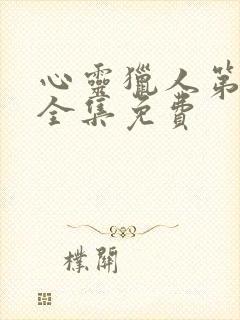 心靈獵人第
全集免費
樸開